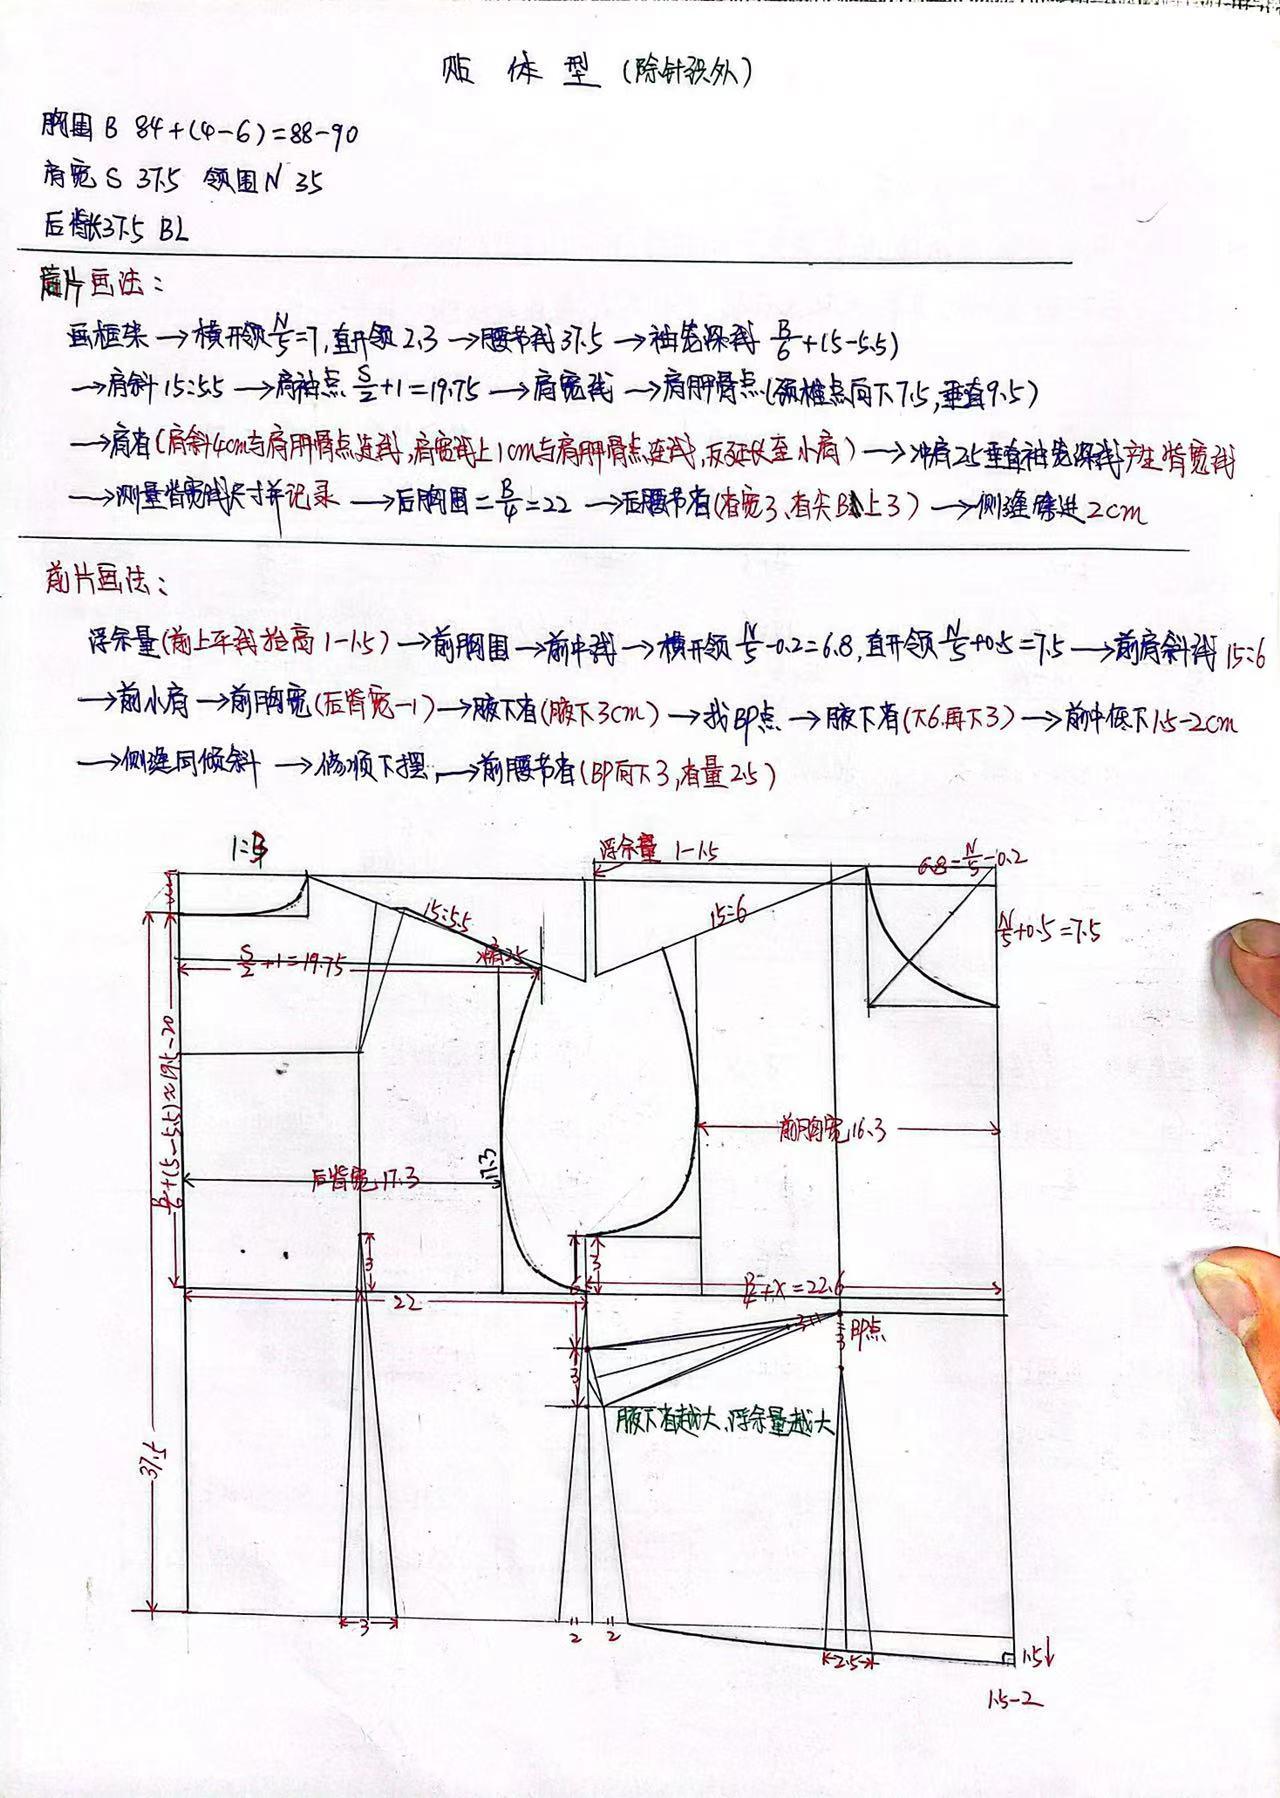 贴体型（除针织外）
胸围 B 84+(4-6)=88-90
肩宽 S 37.5 领围 N 35
后背长37.5 BL
后片画法：
画框架→横开领N/5=7,直开领2.3→腰节线37.5→袖笼深线 B/6+(5-5.5)
→肩斜15:5.5→肩袖点 S/2+1=19.75→肩宽线→肩胛骨点(颈椎点向下7.5,垂直9.5)
→肩省(肩斜4cm与肩胛骨点连线,肩宽线上1cm与肩胛骨点连线,反延长至小肩)→冲肩2.5垂直袖笼深线产生背宽线
→测量背宽线尺寸并记录→后胸围=B/4=22→后腰节省(省宽3、省尖BL上3)→侧缝 进2cm
前片画法：
浮余量(前上平线抬高1-1.5)→前胸围→前中线→横开领N/5-0.2=6.8,直开领N/5+0.5=7.5→前肩斜线15:6
→前小肩→前胸宽(后背宽-1)→腋下省(腋下3cm)→找BP点→腋下省(下6.再下3)→前中低下1.5-2cm
→侧缝同倾斜→修顺下摆,→前腰节省(BP向下3,省量2.5)
浮余量 1-1.5
6.8=N/5-0.2
15:5.5
15:6
N/5+0.5=7.5
冲肩2.5
S/2+1=19.75
B/6+(5-5.5)≈19.5-20
前胸宽16.3
后背宽17.3
17.3
3
3
6
B/4+x=22.6
22
3
BP点
3
3
腋下省越大,浮余量越大
37.5
3
2
2
2.5
1.5↓
1.5-2